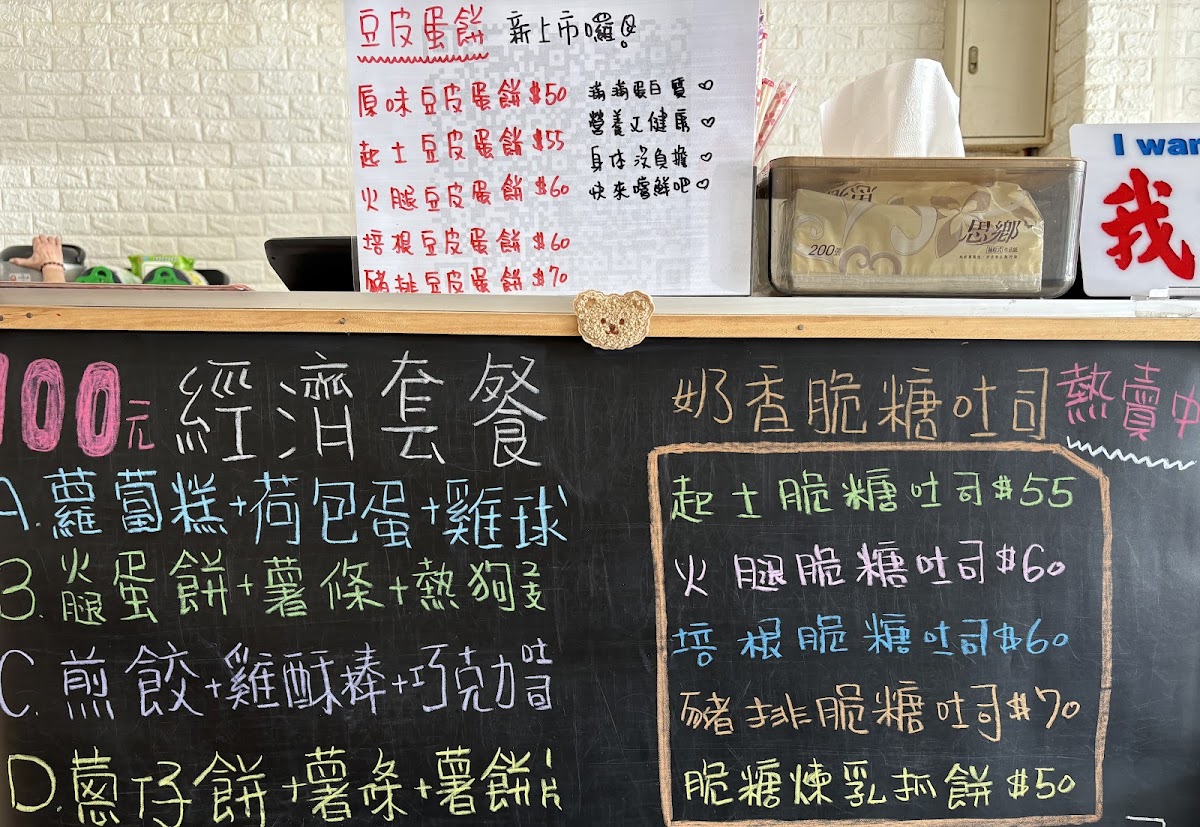 豆皮蛋餅 新上市囉!
原味豆皮蛋餅 $50
起士豆皮蛋餅 $55
火腿豆皮蛋餅 $60
培根豆皮蛋餅 $60
豬排豆皮蛋餅 $70
滿滿蛋白質♡
營養又健康♡
身体沒負擔♡
快來嚐鮮吧♡
思鄉
200張
I wan
我
100元 經濟套餐
A. 蘿蔔糕+荷包蛋+雞球
B. 火腿蛋餅+薯條+熱狗2支
C. 煎餃+雞酥棒+巧克力吐司
D. 蔥仔餅+薯條+薯餅1片
奶香脆糖吐司 熱賣中
起士脆糖吐司$55
火腿脆糖吐司$60
培根脆糖吐司$60
豬排脆糖吐司$70
脆糖煉乳抓餅$50